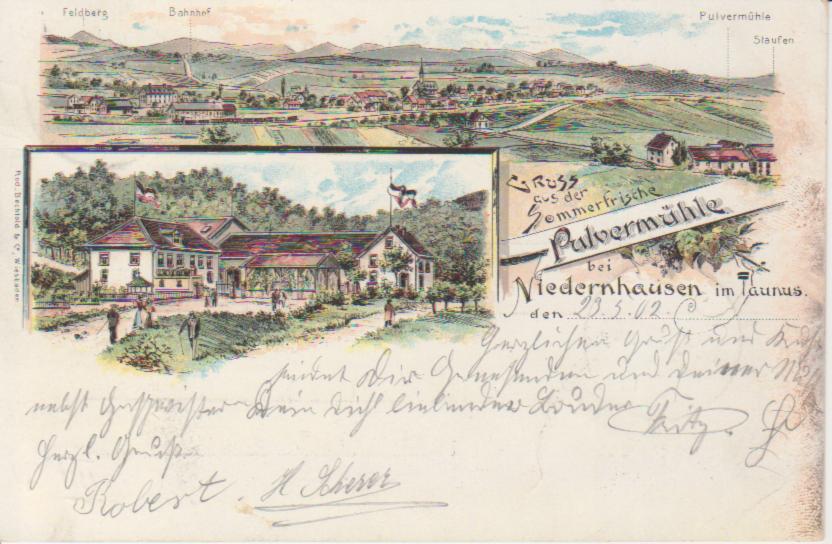 Feldberg Bahnhof Pulvermühle
Staufen
Gruss
aus der
Sommerfrische
Pulvermühle
bei
Niedernhausen im Taunus.
den 23.5.02.
Rud. Bechtold & Co, Wiesbaden
Herzlichen Gruß und Kuß
sendet Dir und Deiner
nebst Geschwister Dein Dich liebender Bruder Fritz.
Herzl. Gruß
Robert. H Scherer